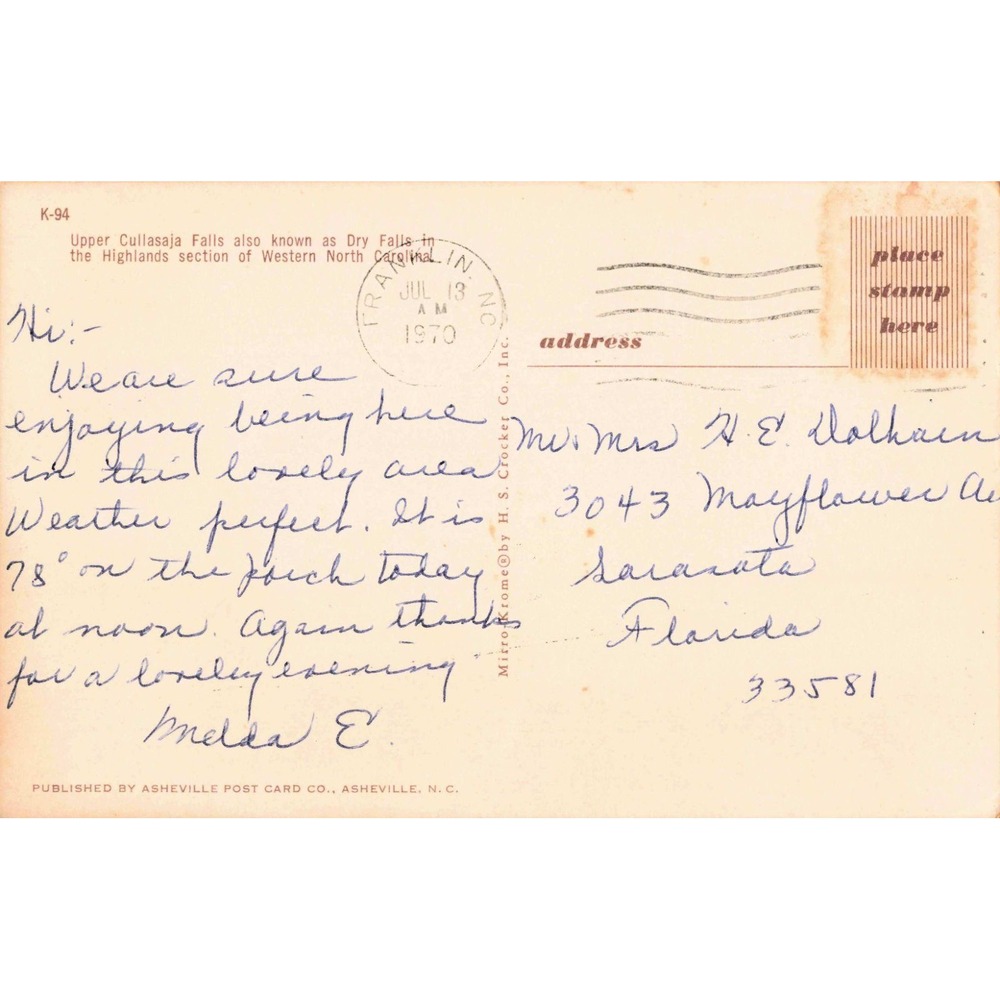 K-94
Upper Cullasaja Falls also known as Dry Falls in
the Highlands section of Western North Carolina.
FRANKLIN, NC
JUL 13
AM
1970
place
stamp
here
address
Hi:-
We are sure
enjoying being here
in this lovely area
Weather perfect. It is
78° on the porch today
at noon. Again thanks
for a lovely evening
Melda E.
Mirro-Krome® by H. S. Crocker Co., Inc.
Mr. Mrs H. E. Dolhain
3043 Mayflower
Sarasota
Florida
33581
PUBLISHED BY ASHEVILLE POST CARD CO., ASHEVILLE, N. C.